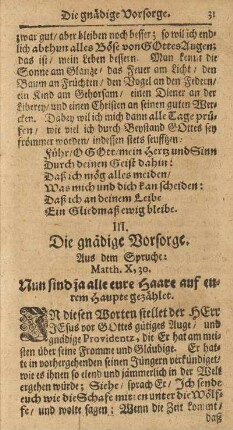 Die gnädige Vorsorge. 31
zwar gut/ aber bleiben noch besser; so wil ich end-
lich abethun alles Böse von GOttes Augen;
das ist/ mein Leben bessern. Man kennt die
Sonne am Glantze/ das Feuer am Licht/ den
Baum an Früchten/ den Vogel an den Federn/
ein Kind am Gehorsam/ einen Diener an der
Liberey/ und einen Christen an seinen guten Wer-
cken. Dabey wil ich mich dann alle Tage prü-
fen/ wie viel ich durch Beystand GOttes sey
frömmer worden/ indessen stets seufftzen:
Führ/ O GOtt/ mein Hertz und Sinn
Durch deinen Geist dahin:
Daß ich mög alles meiden/
Was mich und dich kan scheiden:
Daß ich an deinem Leibe
Ein Gliedmaß ewig bleibe.
III.
Die gnädige Vorsorge.
Aus dem Spruche:
Matth. X, 30.
Nun sind ja alle eure Haare auf eu-
rem Haupte gezählet.
IN diesen Worten stellet der HErr
JEsus vor GOttes gütiges Auge/ und
gnädige Providentz, die Er hat am mei-
sten über seine Fromme und Gläubige. Er hat-
te in vorhergehenden seinen Jüngern verkündiget/
wie es ihnen so elend und jämmerlich in der Welt
ergehen würde; Siehe/ sprach Er/ Ich sende
euch wie die Schafe mitten unter die Wölf-
fe/ und wolte sagen; Wenn die Zeit kommt/
daß